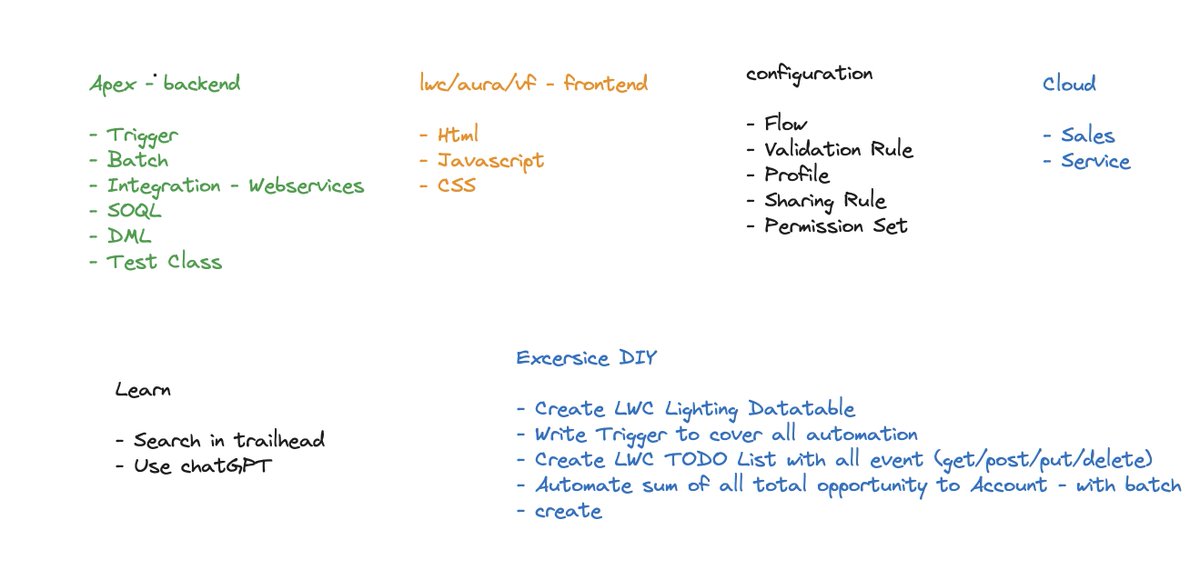 Apex - backend
- Trigger
- Batch
- Integration - Webservices
- SOQL
- DML
- Test Class
lwc/aura/vf - frontend
- Html
- Javascript
- CSS
configuration
- Flow
- Validation Rule
- Profile
- Sharing Rule
- Permission Set
Cloud
- Sales
- Service
Learn
- Search in trailhead
- Use chatGPT
Excersice DIY
- Create LWC Lighting Datatable
- Write Trigger to cover all automation
- Create LWC TODO List with all event (get/post/put/delete)
- Automate sum of all total opportunity to Account - with batch
- create